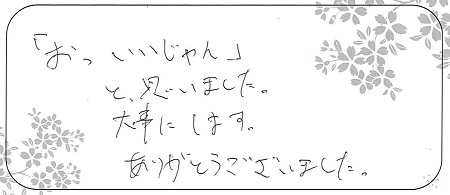 「おっ いいじゃん」
と、思いました。
大事にします。
ありがとうございました。